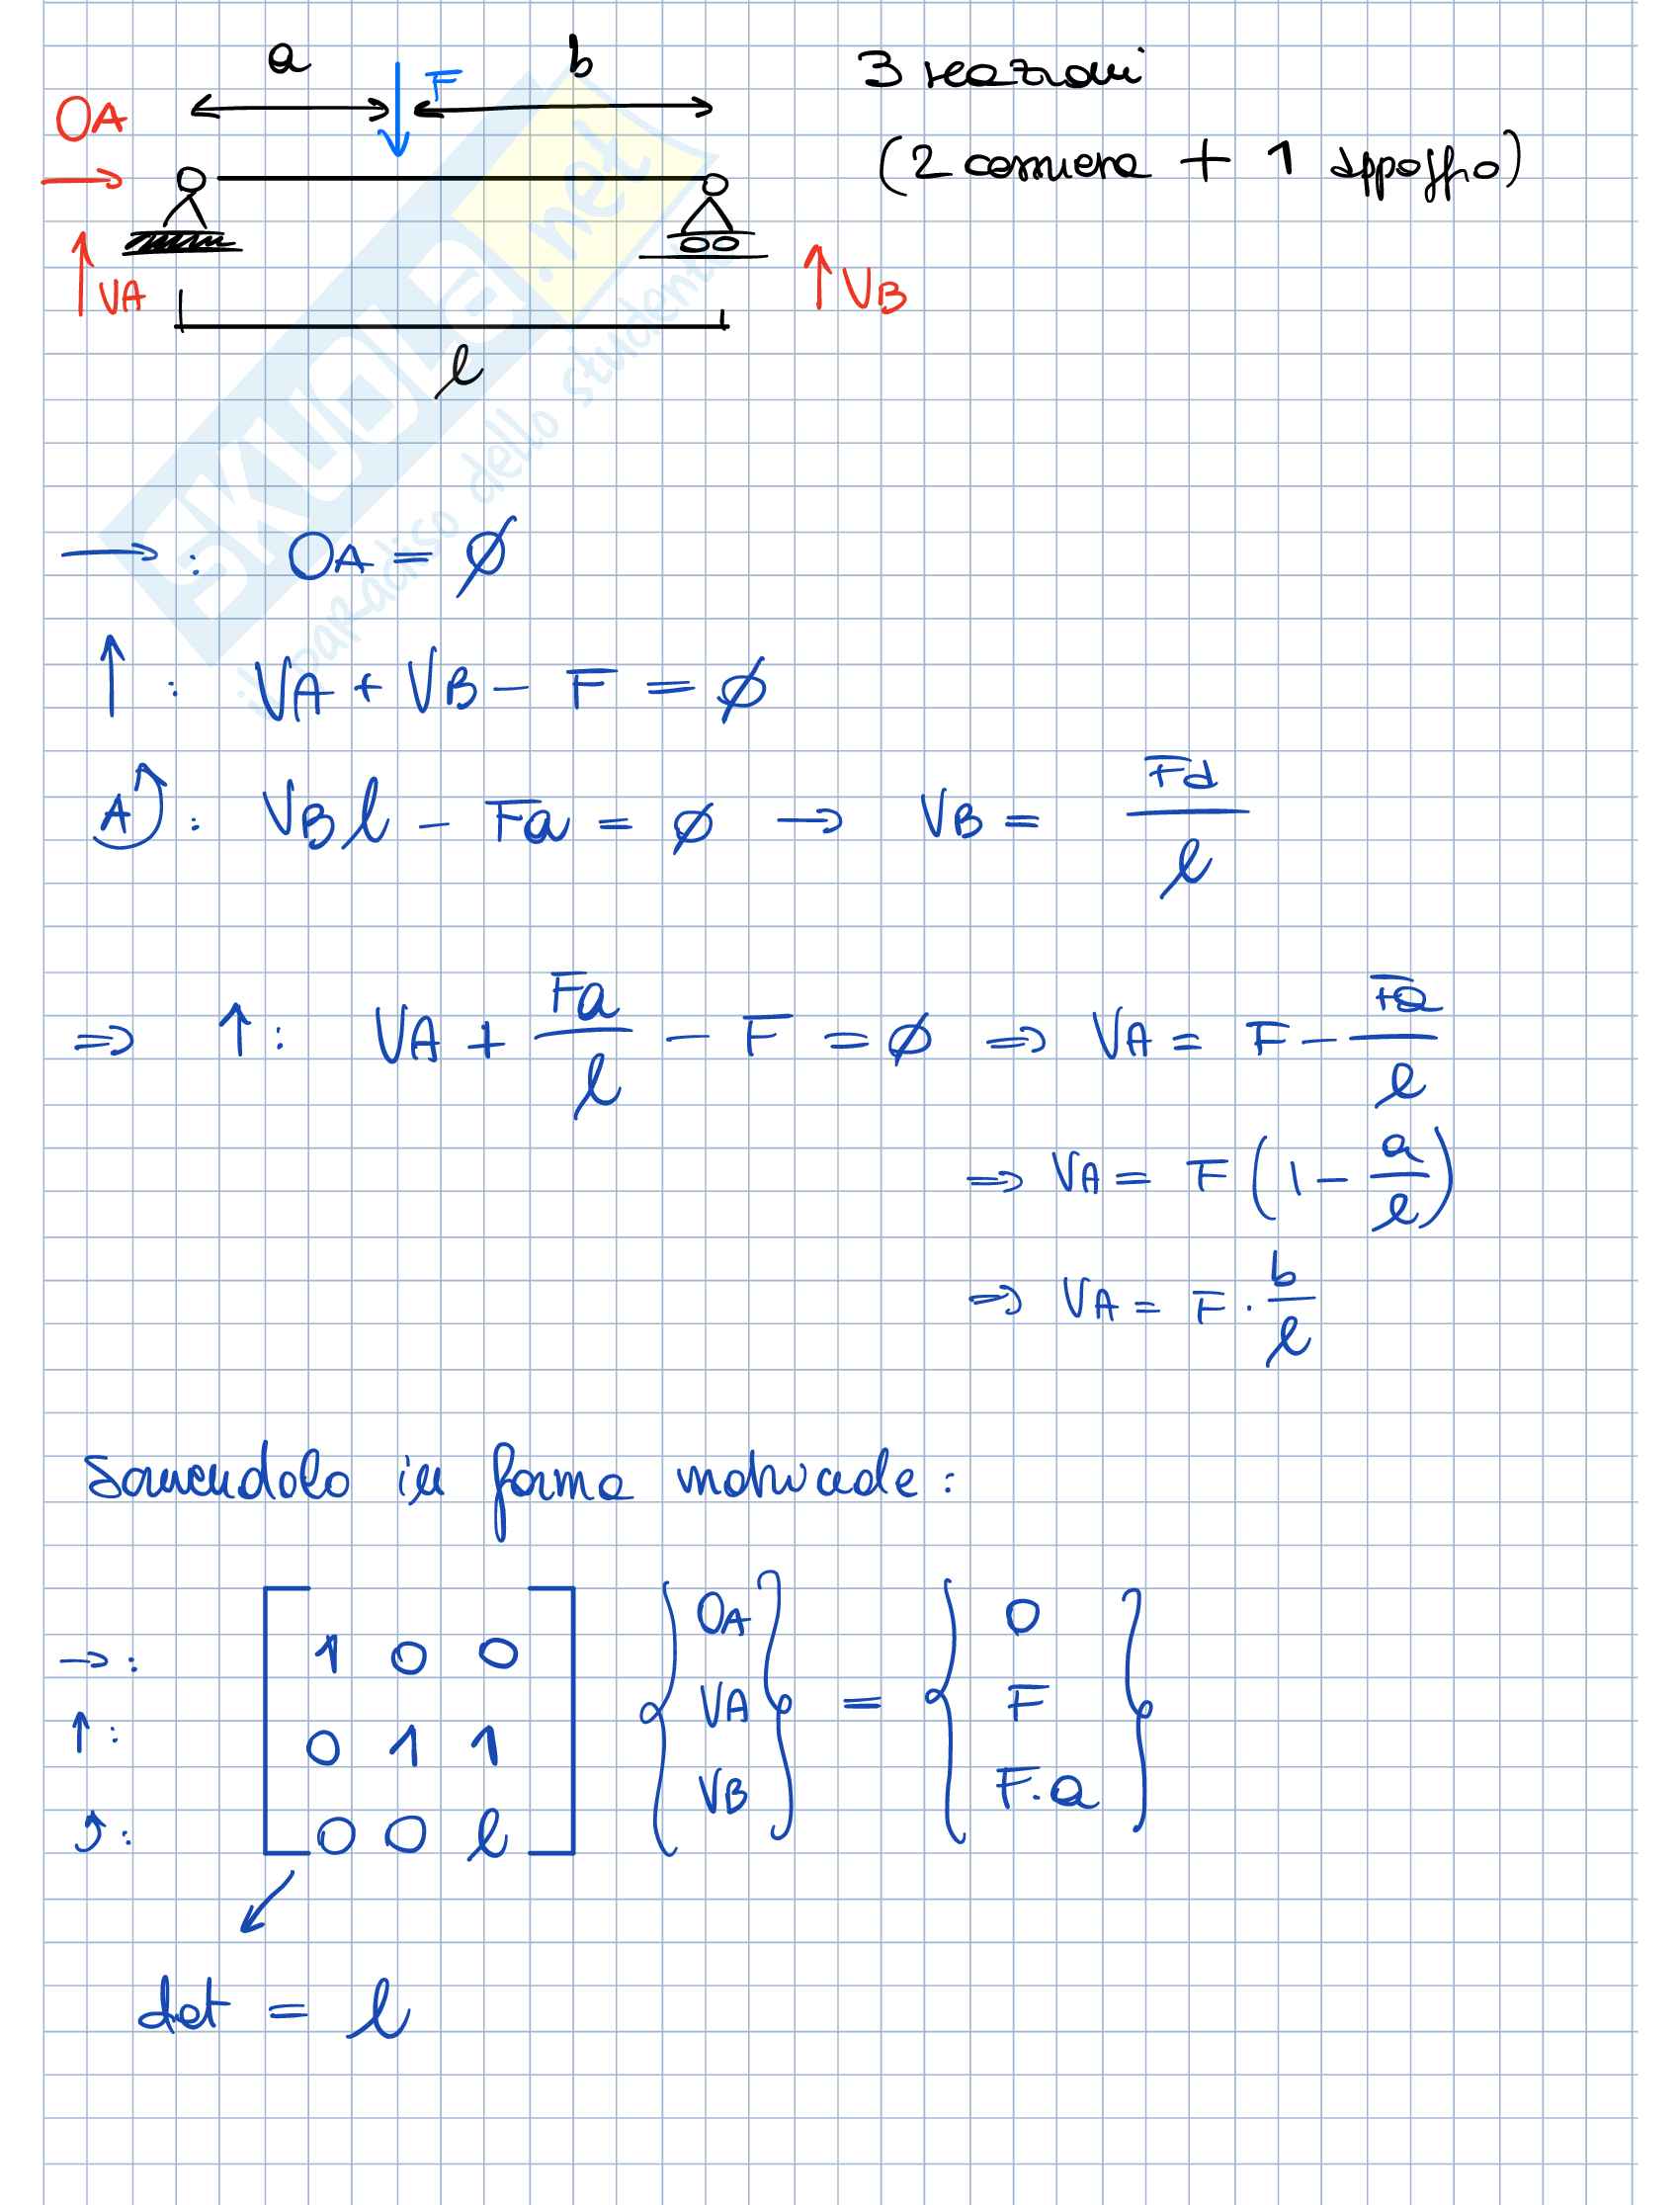 a F b 3 reazioni
OA
(2 cerniera + 1 appoggio)
VA VB
l
SKUOLA.net
il paradiso dello studente
→: OA = ∅
↑: VA + VB - F = ∅
A): VB l - Fa = ∅ → VB = Fa/l
⇒ ↑: VA + Fa/l - F = ∅ ⇒ VA = F - Fa/l
⇒ VA = F (1 - a/l)
⇒ VA = F · b/l
Scrivendolo in forma matriciale:
→: [ 1 0 0 ] { OA } = { 0 }
↑: [ 0 1 1 ] { VA } = { F }
⤴: [ 0 0 l ] { VB } = { F·a }
det = l